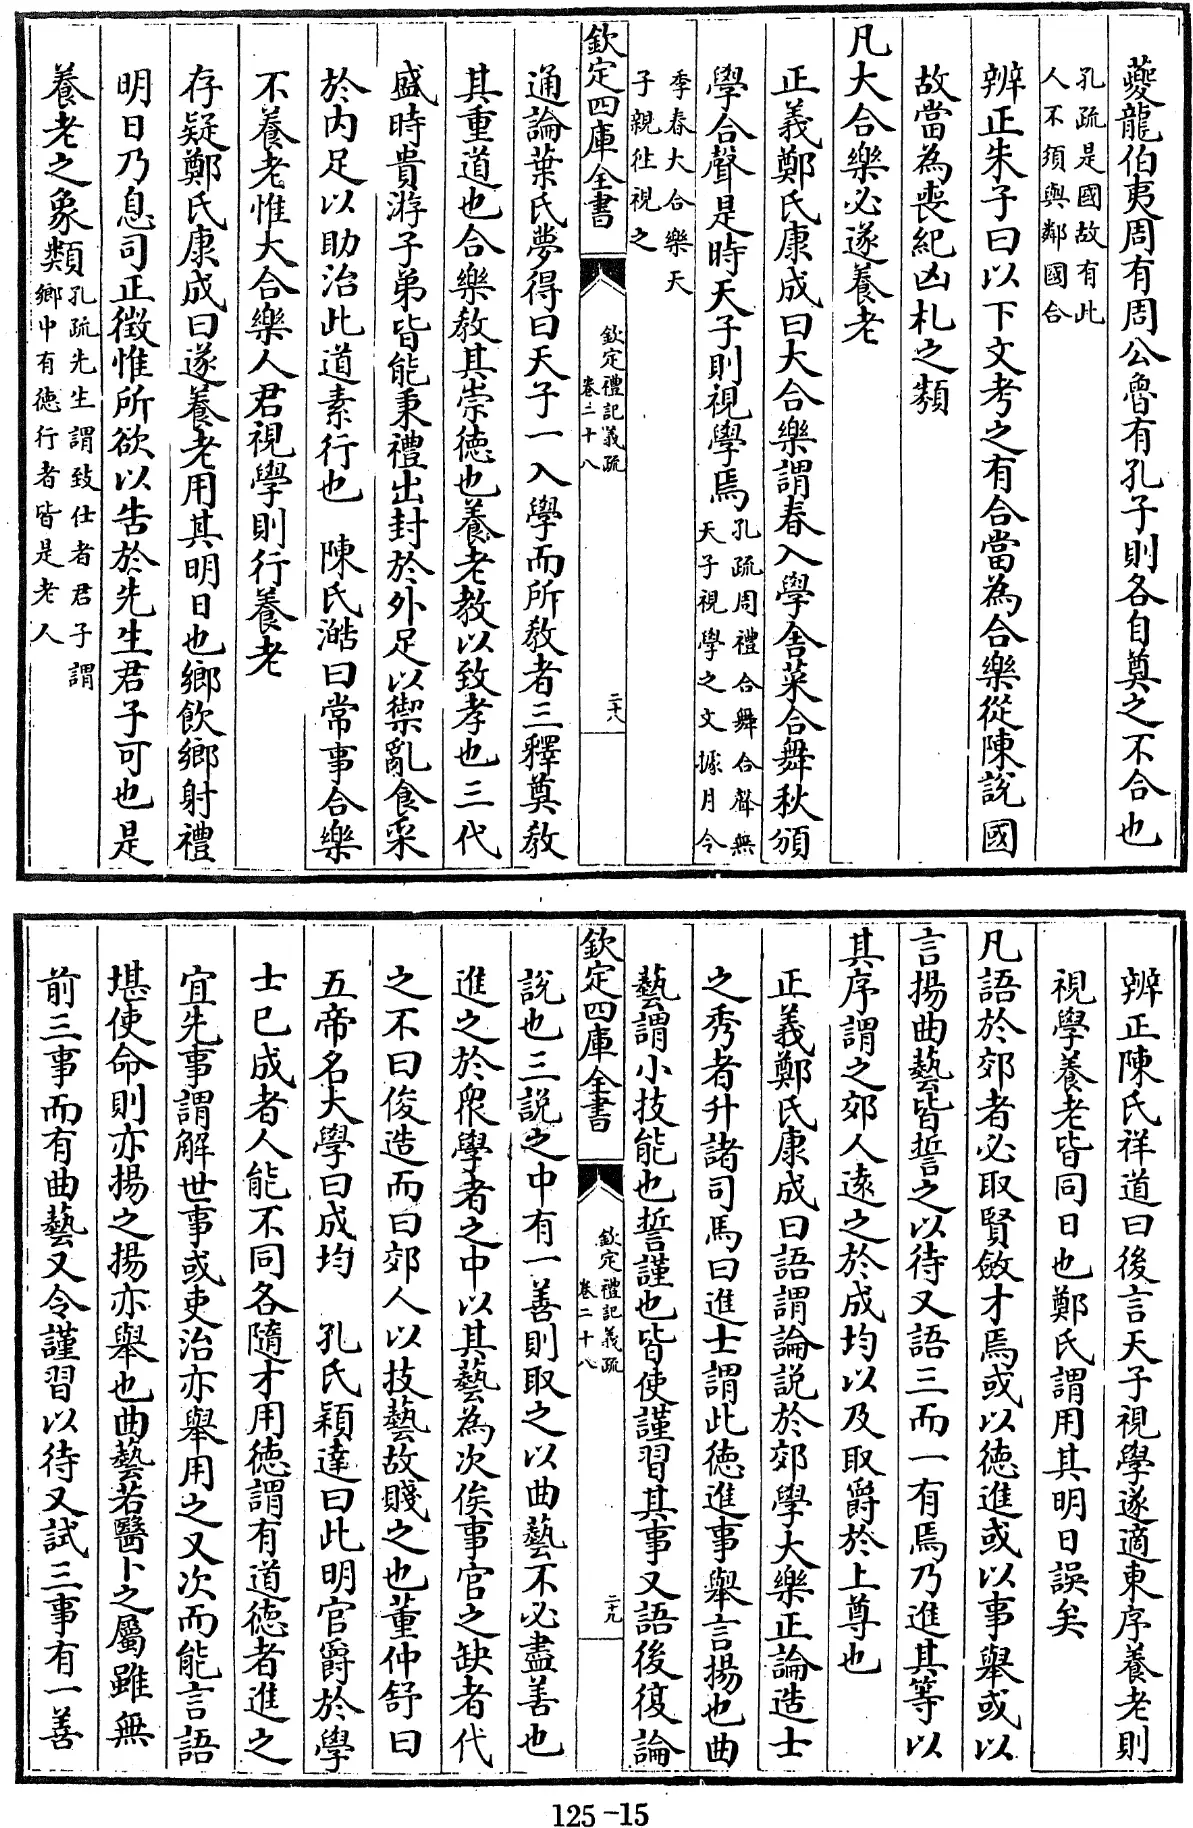 夔龍伯夷周有周公魯有孔子則各自奠之不合也
孔疏是國故有此
人不須與鄰國合
辨正朱子曰以下文考之有合當為合樂從陳説國
故當為喪紀凶札之類
凡大合樂必遂養老
正義鄭氏康成曰大合樂謂春入學舍菜合舞秋頒
學合聲是時天子則視學焉
孔疏周禮合舞合聲無
天子視學之文據月令
季春大合樂天
子親往視之
欽定四庫全書
欽定禮記義疏
卷二十八
二十八
通論葉氏夢得曰天子一入學而所教者三釋奠教
其重道也合樂教其崇德也養老教以致孝也三代
盛時貴游子弟皆能秉禮出封於外足以禦亂食采
於内足以助治此道素行也　陳氏澔曰常事合樂
不養老惟大合樂人君視學則行養老
存疑鄭氏康成曰遂養老用其明日也鄉飲鄉射禮
明日乃息司正徵惟所欲以告於先生君子可也是
養老之象類
孔疏先生謂致仕者君子謂
鄉中有德行者皆是老人
辨正陳氏祥道曰後言天子視學遂適東序養老則
視學養老皆同日也鄭氏謂用其明日誤矣
凡語於郊者必取賢斂才焉或以德進或以事舉或以
言揚曲藝皆誓之以待又語三而一有焉乃進其等以
其序謂之郊人遠之於成均以及取爵於上尊也
正義鄭氏康成曰語謂論説於郊學大樂正論造士
之秀者升諸司馬曰進士謂此德進事舉言揚也曲
藝謂小技能也誓謹也皆使謹習其事又語後復論
欽定四庫全書
欽定禮記義疏
卷二十八
二十九
説也三説之中有一善則取之以曲藝不必盡善也
進之於衆學者之中以其藝為次俟事官之缺者代
之不曰俊造而曰郊人以技藝故賤之也董仲舒曰
五帝名大學曰成均　孔氏穎達曰此明官爵於學
士已成者人能不同各隨才用德謂有道德者進之
宜先事謂解世事或吏治亦舉用之又次而能言語
堪使命則亦揚之揚亦舉也曲藝若醫卜之屬雖無
前三事而有曲藝又令謹習以待又試三事有一善
125-15